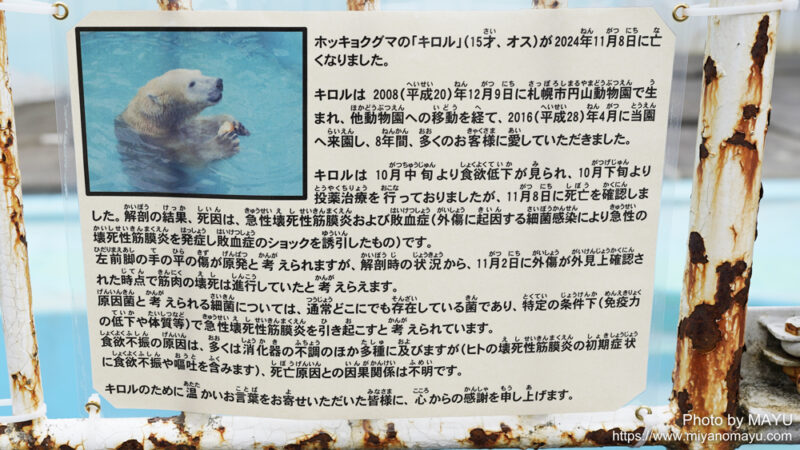 ホッキョクグマの「キロル」(15才、オス)が2024年11月8日に亡
くなりました。
キロルは 2008(平成20)年12月9日に札幌市円山動物園で生
まれ、他動物園への移動を経て、2016(平成28)年4月に当園
へ来園し、8年間、多くのお客様に愛していただきました。
キロルは 10月中旬より食欲低下が見られ、10月下旬より
投薬治療を行っておりましたが、11月8日に死亡を確認しま
した。解剖の結果、死因は、急性壊死性筋膜炎および敗血症(外傷に起因する細菌感染により急性の
壊死性筋膜炎を発症し敗血症のショックを誘引したもの)です。
左前脚の手の平の傷が原発と考えられますが、解剖時の状況から、11月2日に外傷が外見上確認さ
れた時点で筋肉の壊死は進行していたと考えらえます。
原因菌と考えられる細菌については、通常どこにでも存在している菌であり、特定の条件下(免疫力
の低下や体質等)で急性壊死性筋膜炎を引き起こすと考えられています。
食欲不振の原因は、多くは消化器の不調のほか多種に及びますが(ヒトの壊死性筋膜炎の初期症状
に食欲不振や嘔吐を含みます)、死亡原因との因果関係は不明です。
キロルのために温かいお言葉をお寄せいただいた皆様に、心からの感謝を申し上げます。
Photo by MAYU
https://www.miyanomayu.com/